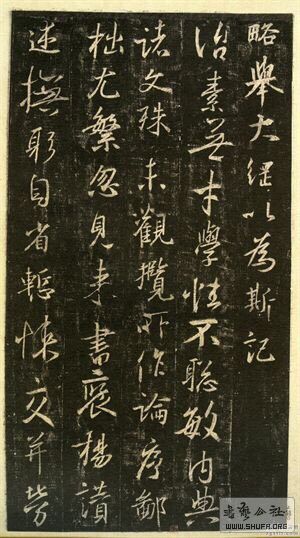 略舉大綱以為斯記
治素無才學性不聰敏內典
諸文殊未觀攬所作論序鄙
拙尤繁忽見來書褒揚讚
述撫躬自省慙悚交并勞
書藝公社
WWW.SHUFA.ORG